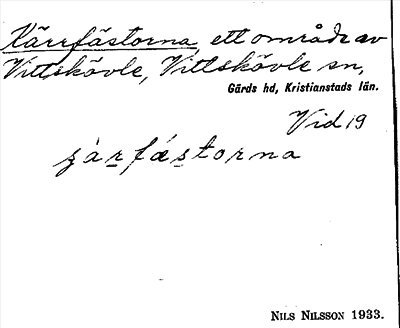 Kärrfästorna, ett område av
Vittskövle, Vittskövle sn,
Gärds hd, Kristianstads län.
Vid 19
fästorna
NILS NILSSON 1933.